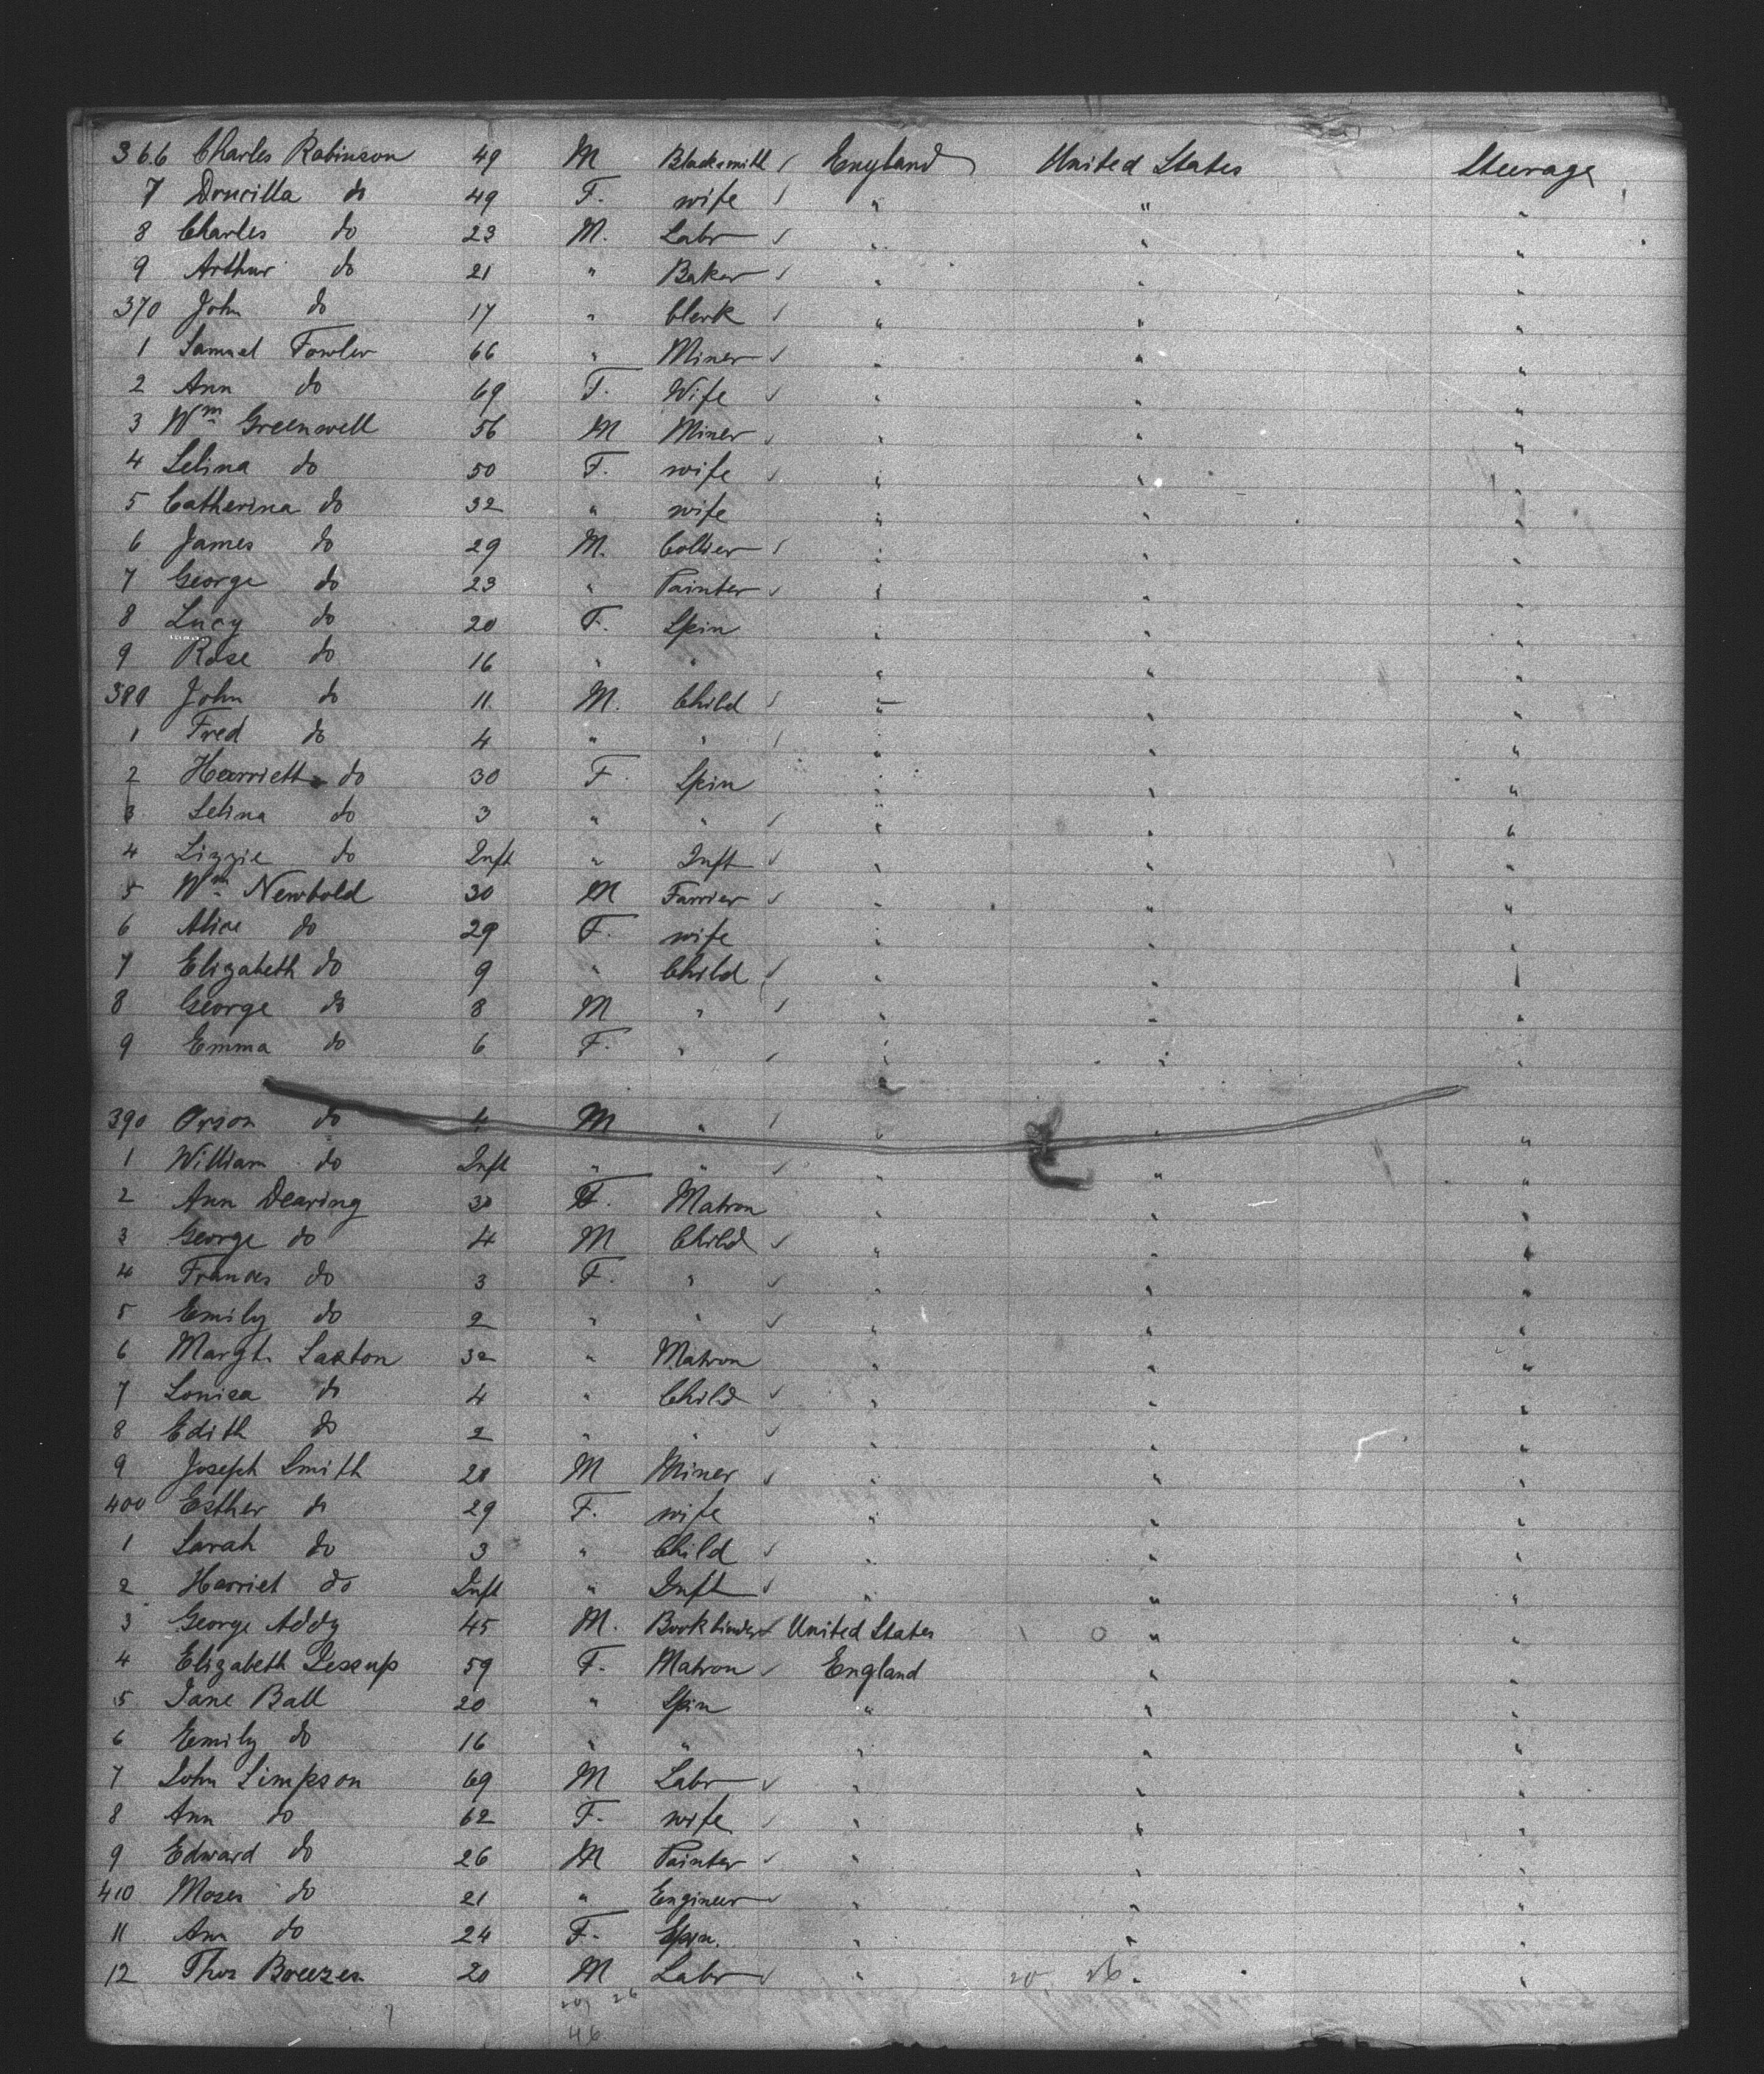 366 Charles Robinson 49 M Blacksmith England United States Steerage
7 Drucilla do 49 F. wife " " "
8 Charles do 23 M. Labr " " "
9 Arthur do 21 " Baker " " "
370 John do 17 " Clerk " " "
1 Samuel Fowler 66 " Miner " " "
2 Ann do 69 F. Wife " " "
3 Wm Greenwell 56 M Miner " " "
4 Selina do 50 F. wife " " "
5 Catherina do 32 " wife " " "
6 James do 29 M. Collier " " "
7 George do 23 " Painter " " "
8 Lucy do 20 F. Spin " " "
9 Rose do 16 " " " " "
380 John do 11 M. Child " " "
1 Fred do 4 " " " " "
2 Harriett do 30 F. Spin " " "
3 Selina do 3 " " " " "
4 Lizzie do Inft " Inft " " "
5 Wm Newbold 30 M Farrier " " "
6 Alice do 29 F. wife " " "
7 Elizabeth do 9 " Child " " "
8 George do 8 M " " " "
9 Emma do 6 F. " " " "
390 Orson do 4 M " " " "
1 William do Inft " " " " "
2 Ann Dearing 30 F. Matron " " "
3 George do 4 M Child " " "
4 Frances do 3 F. " " " "
5 Emily do 2 " " " " "
6 Margt. Saxton 32 " Matron " " "
7 Louisa do 4 " Child " " "
8 Edith do 2 " " " " "
9 Joseph Smith 28 M Miner " " "
400 Esther do 29 F. wife " " "
1 Sarah do 3 " Child " " "
2 Harriet do Inft " Inft " " "
3 George Addy 45 M. Bookbinder United States " "
4 Elizabeth Jessup 59 F. Matron England " "
5 Jane Ball 20 " Spin " " "
6 Emily do 16 " " " " "
7 John Simpson 69 M Labr " " "
8 Ann do 62 F. wife " " "
9 Edward do 26 M Painter " " "
410 Moses do 21 " Engineer " " "
11 Ann do 24 F. Spin. " " "
12 Thos Breezes 20 M Labr " 20 26 " "
20 26
46